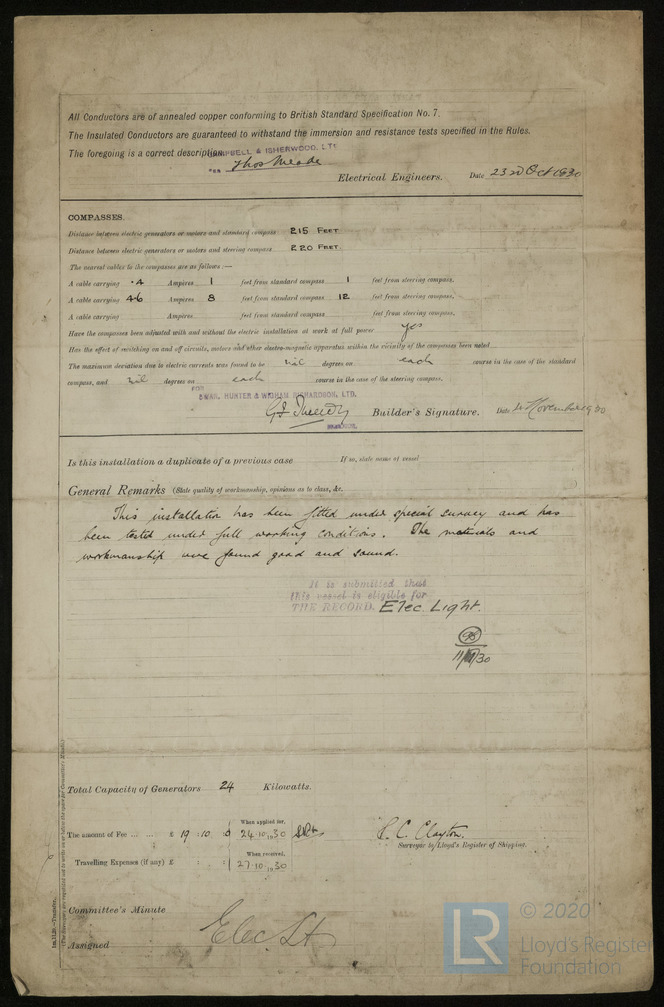 All Conductors are of annealed copper conforming to British Standard Specification No. 7.
The Insulated Conductors are guaranteed to withstand the immersion and resistance tests specified in the Rules.
The foregoing is a correct description.
CAMPBELL & ISHERWOOD, LTD
PER Thos Meade
Electrical Engineers. Date 23rd Oct 1930
COMPASSES.
Distance between electric generators or motors and standard compass 215 FEET
Distance between electric generators or motors and steering compass 220 FEET.
The nearest cables to the compasses are as follows:—
A cable carrying .4 Ampères 1 feet from standard compass 1 feet from steering compass.
A cable carrying 46 Ampères 8 feet from standard compass 12 feet from steering compass.
A cable carrying Ampères feet from standard compass feet from steering compass.
Have the compasses been adjusted with and without the electric installation at work at full power yes
Has the effect of switching on and off circuits, motors and other electro-magnetic apparatus within the vicinity of the compasses been noted
The maximum deviation due to electric currents was found to be nil degrees on each course in the case of the standard
compass, and nil degrees on each course in the case of the steering compass.
FOR
SWAN, HUNTER & WIGHAM RICHARDSON, LTD.
Builder's Signature. Date November 1930
Is this installation a duplicate of a previous case If so, state name of vessel
General Remarks (State quality of workmanship, opinions as to class, &c.
This installation has been fitted under special survey and has
been tested under full working conditions. The materials and
workmanship were found good and sound.
It is submitted that
this vessel is eligible for
THE RECORD. Elec. Light.
11/11/30
Total Capacity of Generators 24 Kilowatts.
The amount of Fee ... ... £ 19 : 10 : 0
When applied for,
24.10.1930
Travelling Expenses (if any) £ : :
When received,
27.10.1930
R. C. Clayton.
Surveyor to Lloyd's Register of Shipping.
Committee's Minute
Assigned Elec Lt
LR © 2020
Lloyd's Register
Foundation